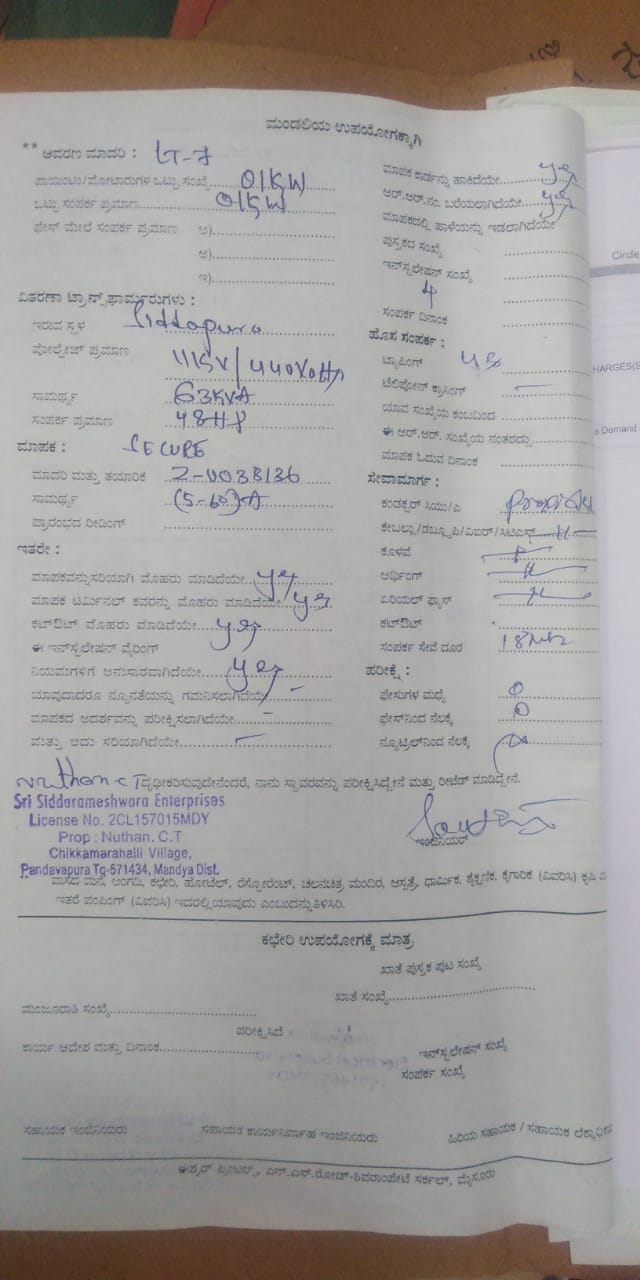 ಮಂಡಲಿಯ ಉಪಯೋಗಕ್ಕಾಗಿ
** ಆವರಣ ಮಾದರಿ : LT-7
ಪಾಯಿಂಟು/ಮೋಟಾರುಗಳ ಒಟ್ಟು ಸಂಖ್ಯೆ 01KW
ಒಟ್ಟು ಸಂಪರ್ಕ ಪ್ರಮಾಣ 01KW
ಫೇಸ್ ಮೇಲೆ ಸಂಪರ್ಕ ಪ್ರಮಾಣ ಅ)
ಆ)
ಇ)
ವಿತರಣಾ ಟ್ರಾನ್ಸ್‌ಫಾರ್ಮರುಗಳು :
ಇರುವ ಸ್ಥಳ Siddapura
ವೋಲ್ಟೇಜ್ ಪ್ರಮಾಣ
ಸಾಮರ್ಥ್ಯ 63KVA
ಸಂಪರ್ಕ ಪ್ರಮಾಣ 48HP
ಮಾಪಕ : SECURE
ಮಾದರಿ ಮತ್ತು ತಯಾರಿಕೆ
ಸಾಮರ್ಥ್ಯ (5-60)A
ಪ್ರಾರಂಭದ ರೀಡಿಂಗ್
ಇತರೇ :
ಮಾಪಕವನ್ನು ಸರಿಯಾಗಿ ಮೊಹರು ಮಾಡಿದೆಯೇ yes
ಮಾಪಕ ಟರ್ಮಿನಲ್ ಕವರನ್ನು ಮೊಹರು ಮಾಡಿದೆಯೇ yes
ಕಟ್‌ಔಟ್ ಮೊಹರು ಮಾಡಿದೆಯೇ yes
ಈ ಇನ್‌ಸ್ಟಲೇಷನ್ ವೈರಿಂಗ್
ನಿಯಮಗಳಿಗೆ ಅನುಸಾರವಾಗಿದೆಯೇ yes
ಯಾವುದಾದರೂ ನ್ಯೂನತೆಯನ್ನು ಗಮನಿಸಲಾಗಿದೆಯೇ -
ಮಾಪಕದ ಆದರ್ಶವನ್ನು ಪರೀಕ್ಷಿಸಲಾಗಿದೆಯೇ -
ಮತ್ತು ಅದು ಸರಿಯಾಗಿದೆಯೇ -
ಮಾಪಕ ಕಾರ್ಡನ್ನು ಹಾಕಿದೆಯೇ yes
ಆರ್.ಆರ್.ನಂ. ಬರೆಯಲಾಗಿದೆಯೇ yes
ಮಾಪಕದಲ್ಲಿ ಹಾಳೆಯನ್ನು ಇಡಲಾಗಿದೆಯೇ
ಪುಸ್ತಕದ ಸಂಖ್ಯೆ
ಇನ್‌ಸ್ಟಲೇಷನ್ ಸಂಖ್ಯೆ
4
ಸಂಪರ್ಕ ದಿನಾಂಕ
ಹೊಸ ಸಂಪರ್ಕ :
ಟ್ಯಾಪಿಂಗ್ yes
ಟೆಲಿಫೋನ್ ಕ್ರಾಸಿಂಗ್ -
ಯಾವ ಸಂಖ್ಯೆಯ ಕಂಬದಿಂದ
ಈ ಆರ್.ಆರ್. ಸಂಖ್ಯೆಯ ನಂತರದ್ದು
ಮಾಪಕ ಓದುವ ದಿನಾಂಕ
ಸೇವಾಮಾರ್ಗ :
ಕಂಡಕ್ಟರ್ ಸಿಯು/ಎ
ಕೇಬಲ್ಲು/ಡಬ್ಲ್ಯೂಪಿ/ಎಐಆರ್/ಸಿಟಿಎಸ್
ಕೊಳವೆ
ಅರ್ಥಿಂಗ್
ಏರಿಯಲ್ ಫ್ಯೂಸ್
ಕಟ್‌ಔಟ್
ಸಂಪರ್ಕ ಸೇವೆ ದೂರ
ಪರೀಕ್ಷೆ :
ಫೇಸುಗಳ ಮಧ್ಯೆ 0
ಫೇಸ್‌ನಿಂದ ನೆಲಕ್ಕೆ 0
ನ್ಯೂಟ್ರಲ್‌ನಿಂದ ನೆಲಕ್ಕೆ
Nuthan CT ದೃಢೀಕರಿಸುವುದೇನೆಂದರೆ, ನಾನು ಸ್ಥಾವರವನ್ನು ಪರೀಕ್ಷಿಸಿದ್ದೇನೆ ಮತ್ತು ರೀಟೆಡ್ ಮಾಡಿದ್ದೇನೆ.
Sri Siddarameshwara Enterprises
License No. 2CL157015MDY
Prop : Nuthan. C.T
Chikkamarahalli Village,
Pandavapura Tq-571434, Mandya Dist.
ಇಂಜಿನಿಯರ್
** ವಾಸದ ಮನೆ, ಅಂಗಡಿ, ಕಛೇರಿ, ಹೋಟೆಲ್, ರೆಸ್ಟೋರೆಂಟ್, ಚಲನಚಿತ್ರ ಮಂದಿರ, ಆಸ್ಪತ್ರೆ, ಧಾರ್ಮಿಕ, ಶೈಕ್ಷಣಿಕ, ಕೈಗಾರಿಕೆ (ವಿವರಿಸಿ) ಕೃಷಿ
ಇತರೆ ಪಂಪಿಂಗ್ (ವಿವರಿಸಿ) ಇದರಲ್ಲಿ ಯಾವುದು ಎಂಬುದನ್ನು ತಿಳಿಸಿರಿ.
ಕಛೇರಿ ಉಪಯೋಗಕ್ಕೆ ಮಾತ್ರ
ಖಾತೆ ಪುಸ್ತಕ ಪುಟ ಸಂಖ್ಯೆ
ಮಂಜೂರಾತಿ ಸಂಖ್ಯೆ ಖಾತೆ ಸಂಖ್ಯೆ
ಪರೀಕ್ಷಿಸಿದೆ
ಕಾರ್ಯ ಆದೇಶ ಮತ್ತು ದಿನಾಂಕ ಇನ್‌ಸ್ಟಲೇಷನ್ ಸಂಖ್ಯೆ
ಸಂಪರ್ಕ ಸಂಖ್ಯೆ
ಸಹಾಯಕ ಇಂಜಿನಿಯರು ಸಹಾಯಕ ಕಾರ್ಯನಿರ್ವಾಹ ಇಂಜಿನಿಯರು ಹಿರಿಯ ಸಹಾಯಕ / ಸಹಾಯಕ ಲೆಕ್ಕಾಧಿಕಾ
ಈಶ್ವರ್ ಪ್ರಿಂಟರ್ಸ್, ಎನ್.ಎಸ್.ರೋಡ್-ಶಿವರಾಂಪೇಟೆ ಸರ್ಕಲ್, ಮೈಸೂರು
Circle
HARGES(S
s Demand